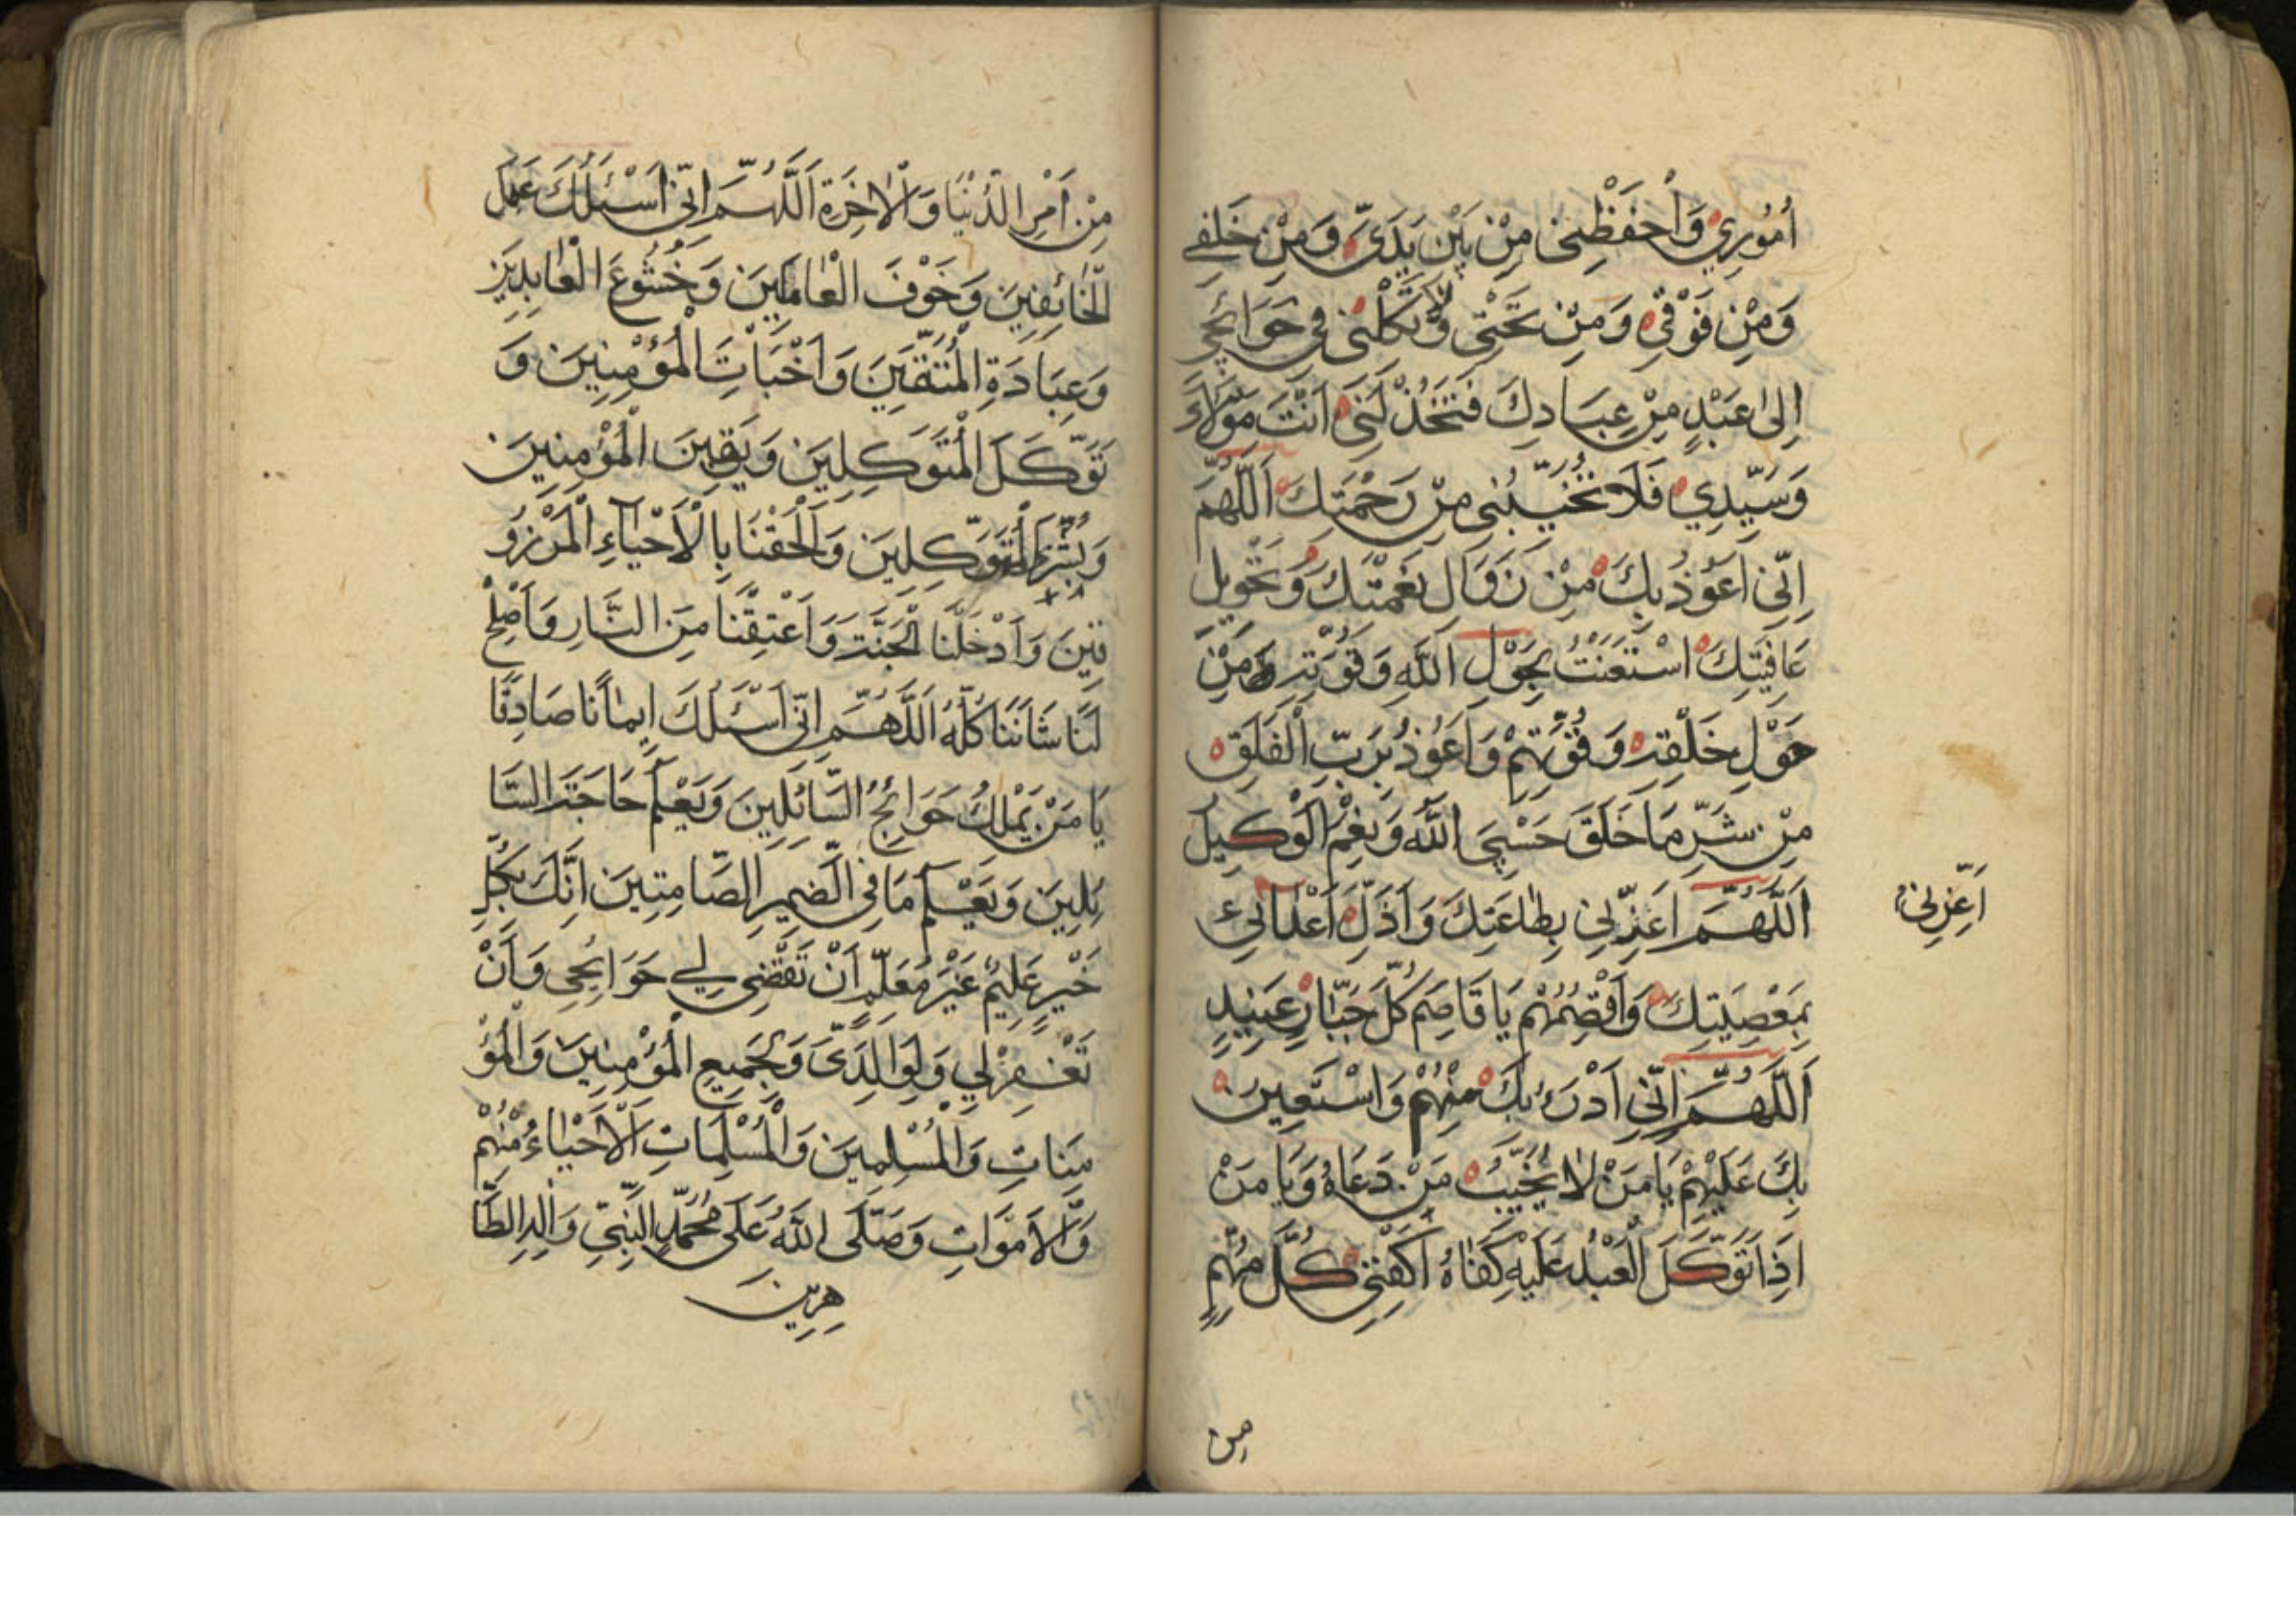 اُمُورِي وَاحْفَظْنِي مِنْ بَيْنِ يَدَيَّ وَمِنْ خَلْفِي
وَمِنْ فَوْقِي وَمِنْ تَحْتِي وَلَا تَكِلْنِي فِي حَوَائِجِي
اِلىٰ عَبْدٍ مِنْ عِبَادِكَ فَتَخْذُلَنِي اَنْتَ مَوْلَايَ
وَسَيِّدِي فَلَا تُخَيِّبْنِي مِنْ رَحْمَتِكَ اَللّٰهُمَّ
اِنِّي اَعُوْذُ بِكَ مِنْ زَوَالِ نِعْمَتِكَ وَتَحْوِيلِ
عَافِيَتِكَ اسْتَعَنْتُ بِحَوْلِ اللهِ وَقُوَّتِهِ مِنْ
حَوْلِ خَلْقِهِ وَقُوَّتِهِمْ وَاَعُوْذُ بِرَبِّ الْفَلَقِ
مِنْ شَرِّ مَا خَلَقَ حَسْبِيَ اللهُ وَنِعْمَ الْوَكِيلُ
اَللّٰهُمَّ اَعِزَّنِي بِطَاعَتِكَ وَاَذِلَّ اَعْدَائِي
اَعِزَّنِي
بِمَعْصِيَتِكَ وَاقْصِمْهُمْ يَا قَاصِمَ كُلِّ جَبَّارٍ عَنِيدٍ
اَللّٰهُمَّ اِنِّي اَدْرَءُ بِكَ مِنْهُمْ وَاسْتَعِينُ
بِكَ عَلَيْهِمْ يَا مَنْ لَا يُخَيِّبُ مَنْ دَعَاهُ وَيَا مَنْ
اِذَا تَوَكَّلَ الْعَبْدُ عَلَيْهِ كَفَاهُ اَكْفِنِي كُلَّ مُهِمٍّ
مِن
مِنْ اَمْرِ الدُّنْيَا وَالْاٰخِرَةِ اَللّٰهُمَّ اِنِّي اَسْئَلُكَ عَمَلَ
الْخَائِفِينَ وَخَوْفَ الْعَامِلِينَ وَخُشُوعَ الْعَابِدِينَ
وَعِبَادَةِ الْمُتَّقِينَ وَاَخْبَاتِ الْمُؤْمِنِينَ وَ
تَوَكَّلَ الْمُتَوَكِلِينَ وَيَقِينَ الْمُؤْمِنِينَ
وَبُشْرَ الْمُتَوَكِّلِينَ وَالْحِقْنَا بِالْاَحْيَآءِ الْمَرْزُو
قِينَ وَاَدْخِلْنَا الْجَنَّةَ وَاَعْتِقْنَا مِنَ النَّارِ وَاَصْلِحْ
لَنَا شَاْنَنَا كُلَّهُ اَللّٰهُمَّ اِنِّي اَسْئَلُكَ اِيمَانًا صَادِقًا
يَا مَنْ يَمْلِكُ حَوَائِجُ السَّائِلِينَ وَيَعْلَمُ حَاجَةَ السَّا
ئِلِينَ وَيَعْلَمُ مَا فِي الضَّمِيرِ الصَّامِتِينَ اِنَّكَ بِكُلِّ
خَيْرٍ عَلِيمٌ غَيْرَ مُعَلَّمٍ اَنْ تَقْضِيَ لِي حَوَائِجِي وَاَنْ
تَغْفِرْ لِي وَلِوَالِدَيَّ وَلِجَمِيعِ الْمُؤْمِنِينَ وَالْمُؤْ
مِنَاتِ وَالْمُسْلِمِينَ وَالْمُسْلِمَاتِ اَلْاَحْيَاءُ مِنْهُمْ
وَالْاَمْوَاتِ وَصَلَّى اللهُ عَلَى مُحَمَّدٍ النَّبِيِّ وَاٰلِهِ الطَّا
هِرِينَ